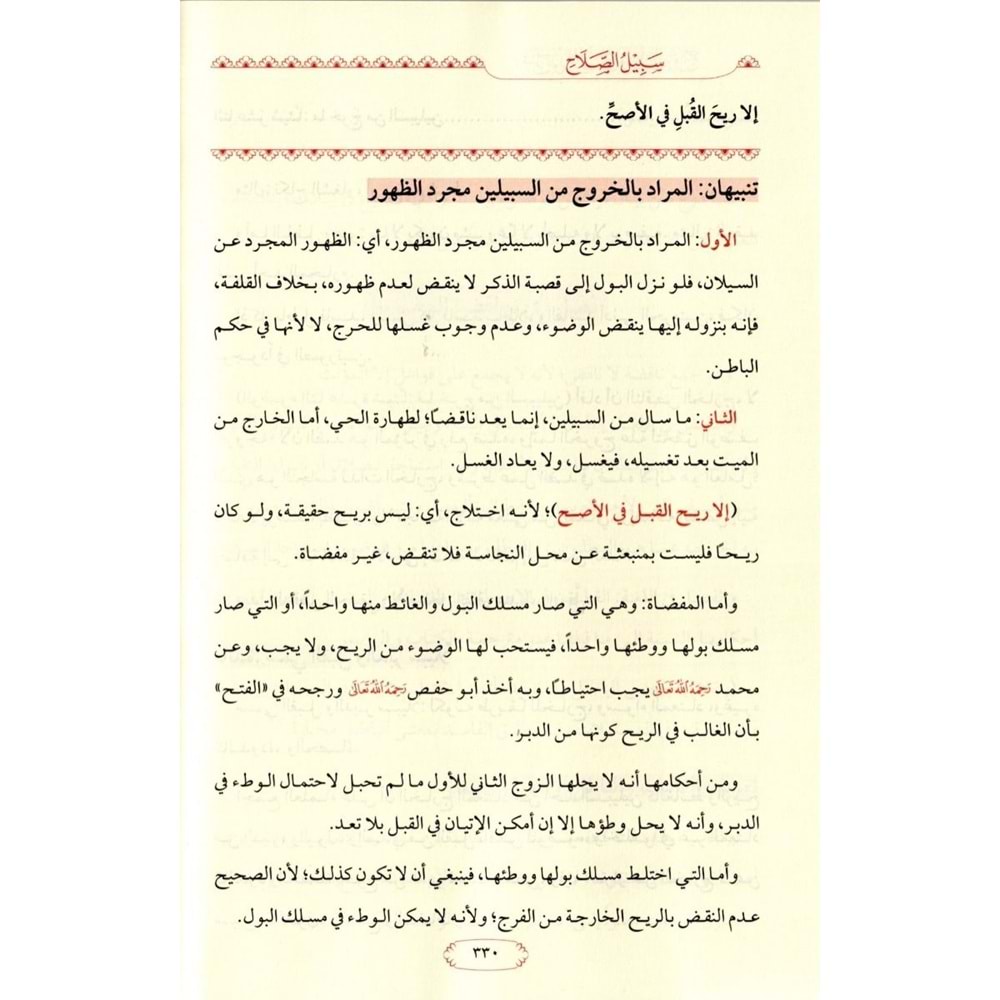 سَبِيْلُ الصَّلَاحِ
إلا ريحَ القُبلِ في الأصحِّ.
تنبيهان: المراد بالخروج من السبيلين مجرد الظهور
الأول: المراد بالخروج من السبيلين مجرد الظهور، أي: الظهور المجرد عن
السيلان، فلو نزل البول إلى قصبة الذكر لا ينقض لعدم ظهوره، بخلاف القلفة،
فإنه بنزوله إليها ينقض الوضوء، وعدم وجوب غسلها للحرج، لا لأنها في حكم
الباطن.
الثاني: ما سال من السبيلين، إنما يعد ناقضًا؛ لطهارة الحي، أما الخارج من
الميت بعد تغسيله، فيغسل، ولا يعاد الغسل.
(إلا ريح القبل في الأصح)؛ لأنه اختلاج، أي: ليس بريح حقيقة، ولو كان
ريحًا فليست بمنبعثة عن محل النجاسة فلا تنقض، غير مفضاة.
وأما المفضاة: وهي التي صار مسلك البول والغائط منها واحداً، أو التي صار
مسلك بولها ووطئها واحداً، فيستحب لها الوضوء من الريح، ولا يجب، وعن
محمد رَحِمَهُ اللهُ تَعَالَى يجب احتياطًا، وبه أخذ أبو حفص رَحِمَهُ اللهُ تَعَالَى ورجحه في «الفتح»
بأن الغالب في الريح كونها من الدبر.
ومن أحكامها أنه لا يحلها الزوج الثاني للأول ما لم تحبل لاحتمال الوطء في
الدبر، وأنه لا يحل وطؤها إلا إن أمكن الإتيان في القبل بلا تعد.
وأما التي اختلط مسلك بولها ووطئها، فينبغي أن لا تكون كذلك؛ لأن الصحيح
عدم النقض بالريح الخارجة من الفرج؛ ولأنه لا يمكن الوطء في مسلك البول.
٣٣٠